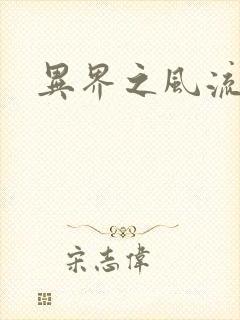 異界之風流
宋志偉